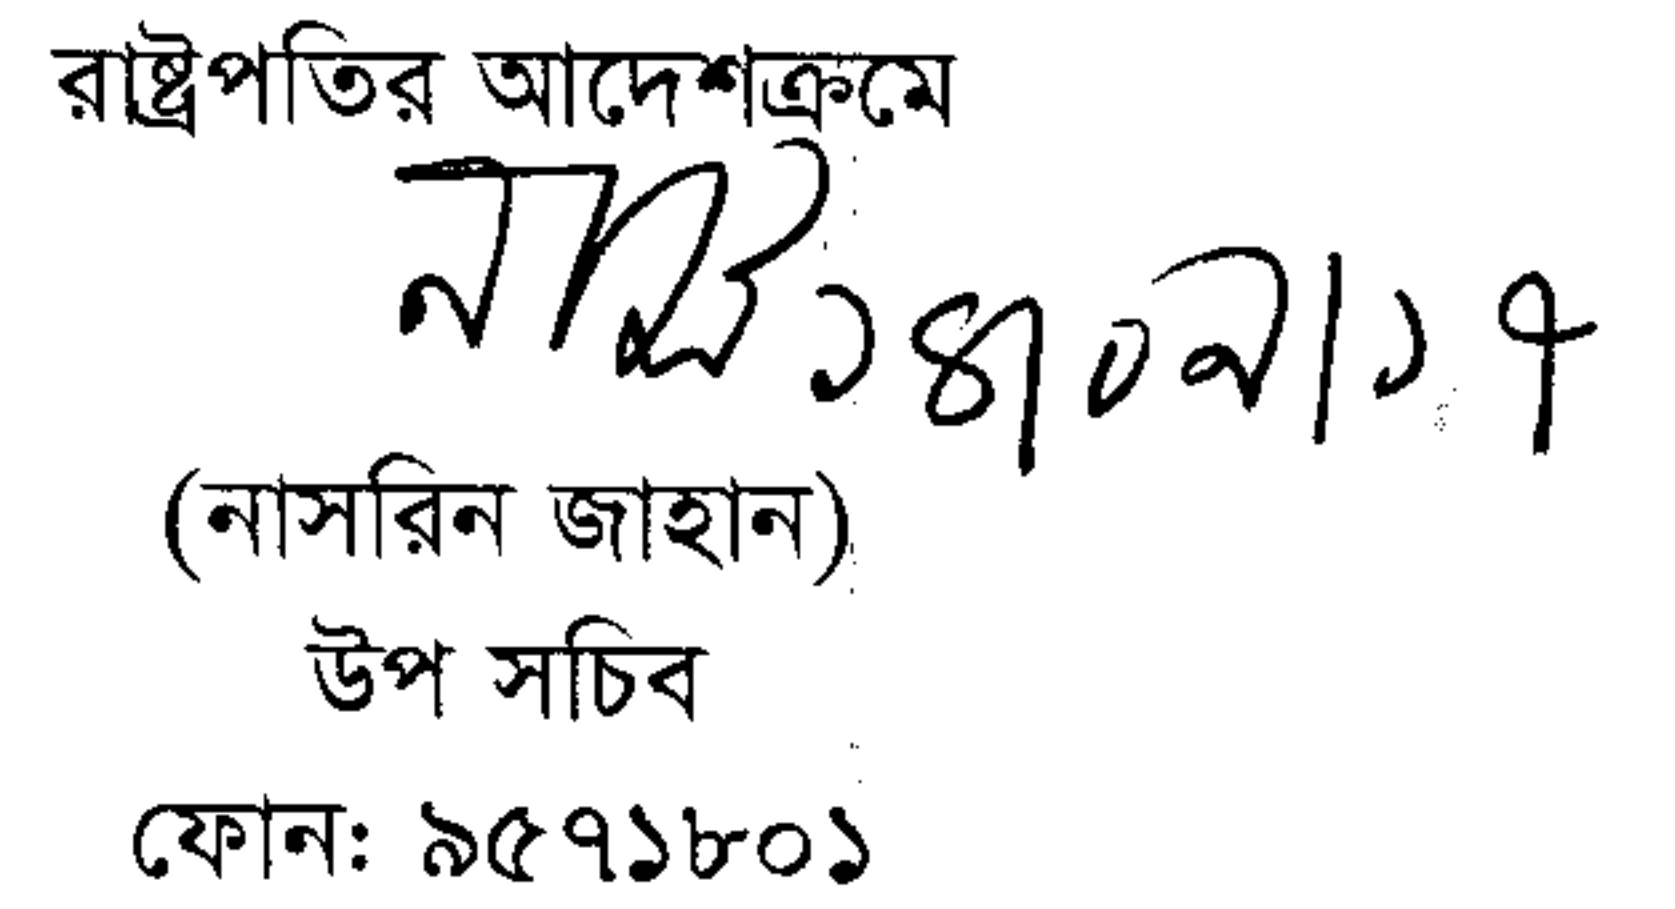 রাষ্ট্রপতির আদেশক্রমে
(নাসরিন জাহান)
উপ সচিব
ফোন: ৯৫৭১৮০১